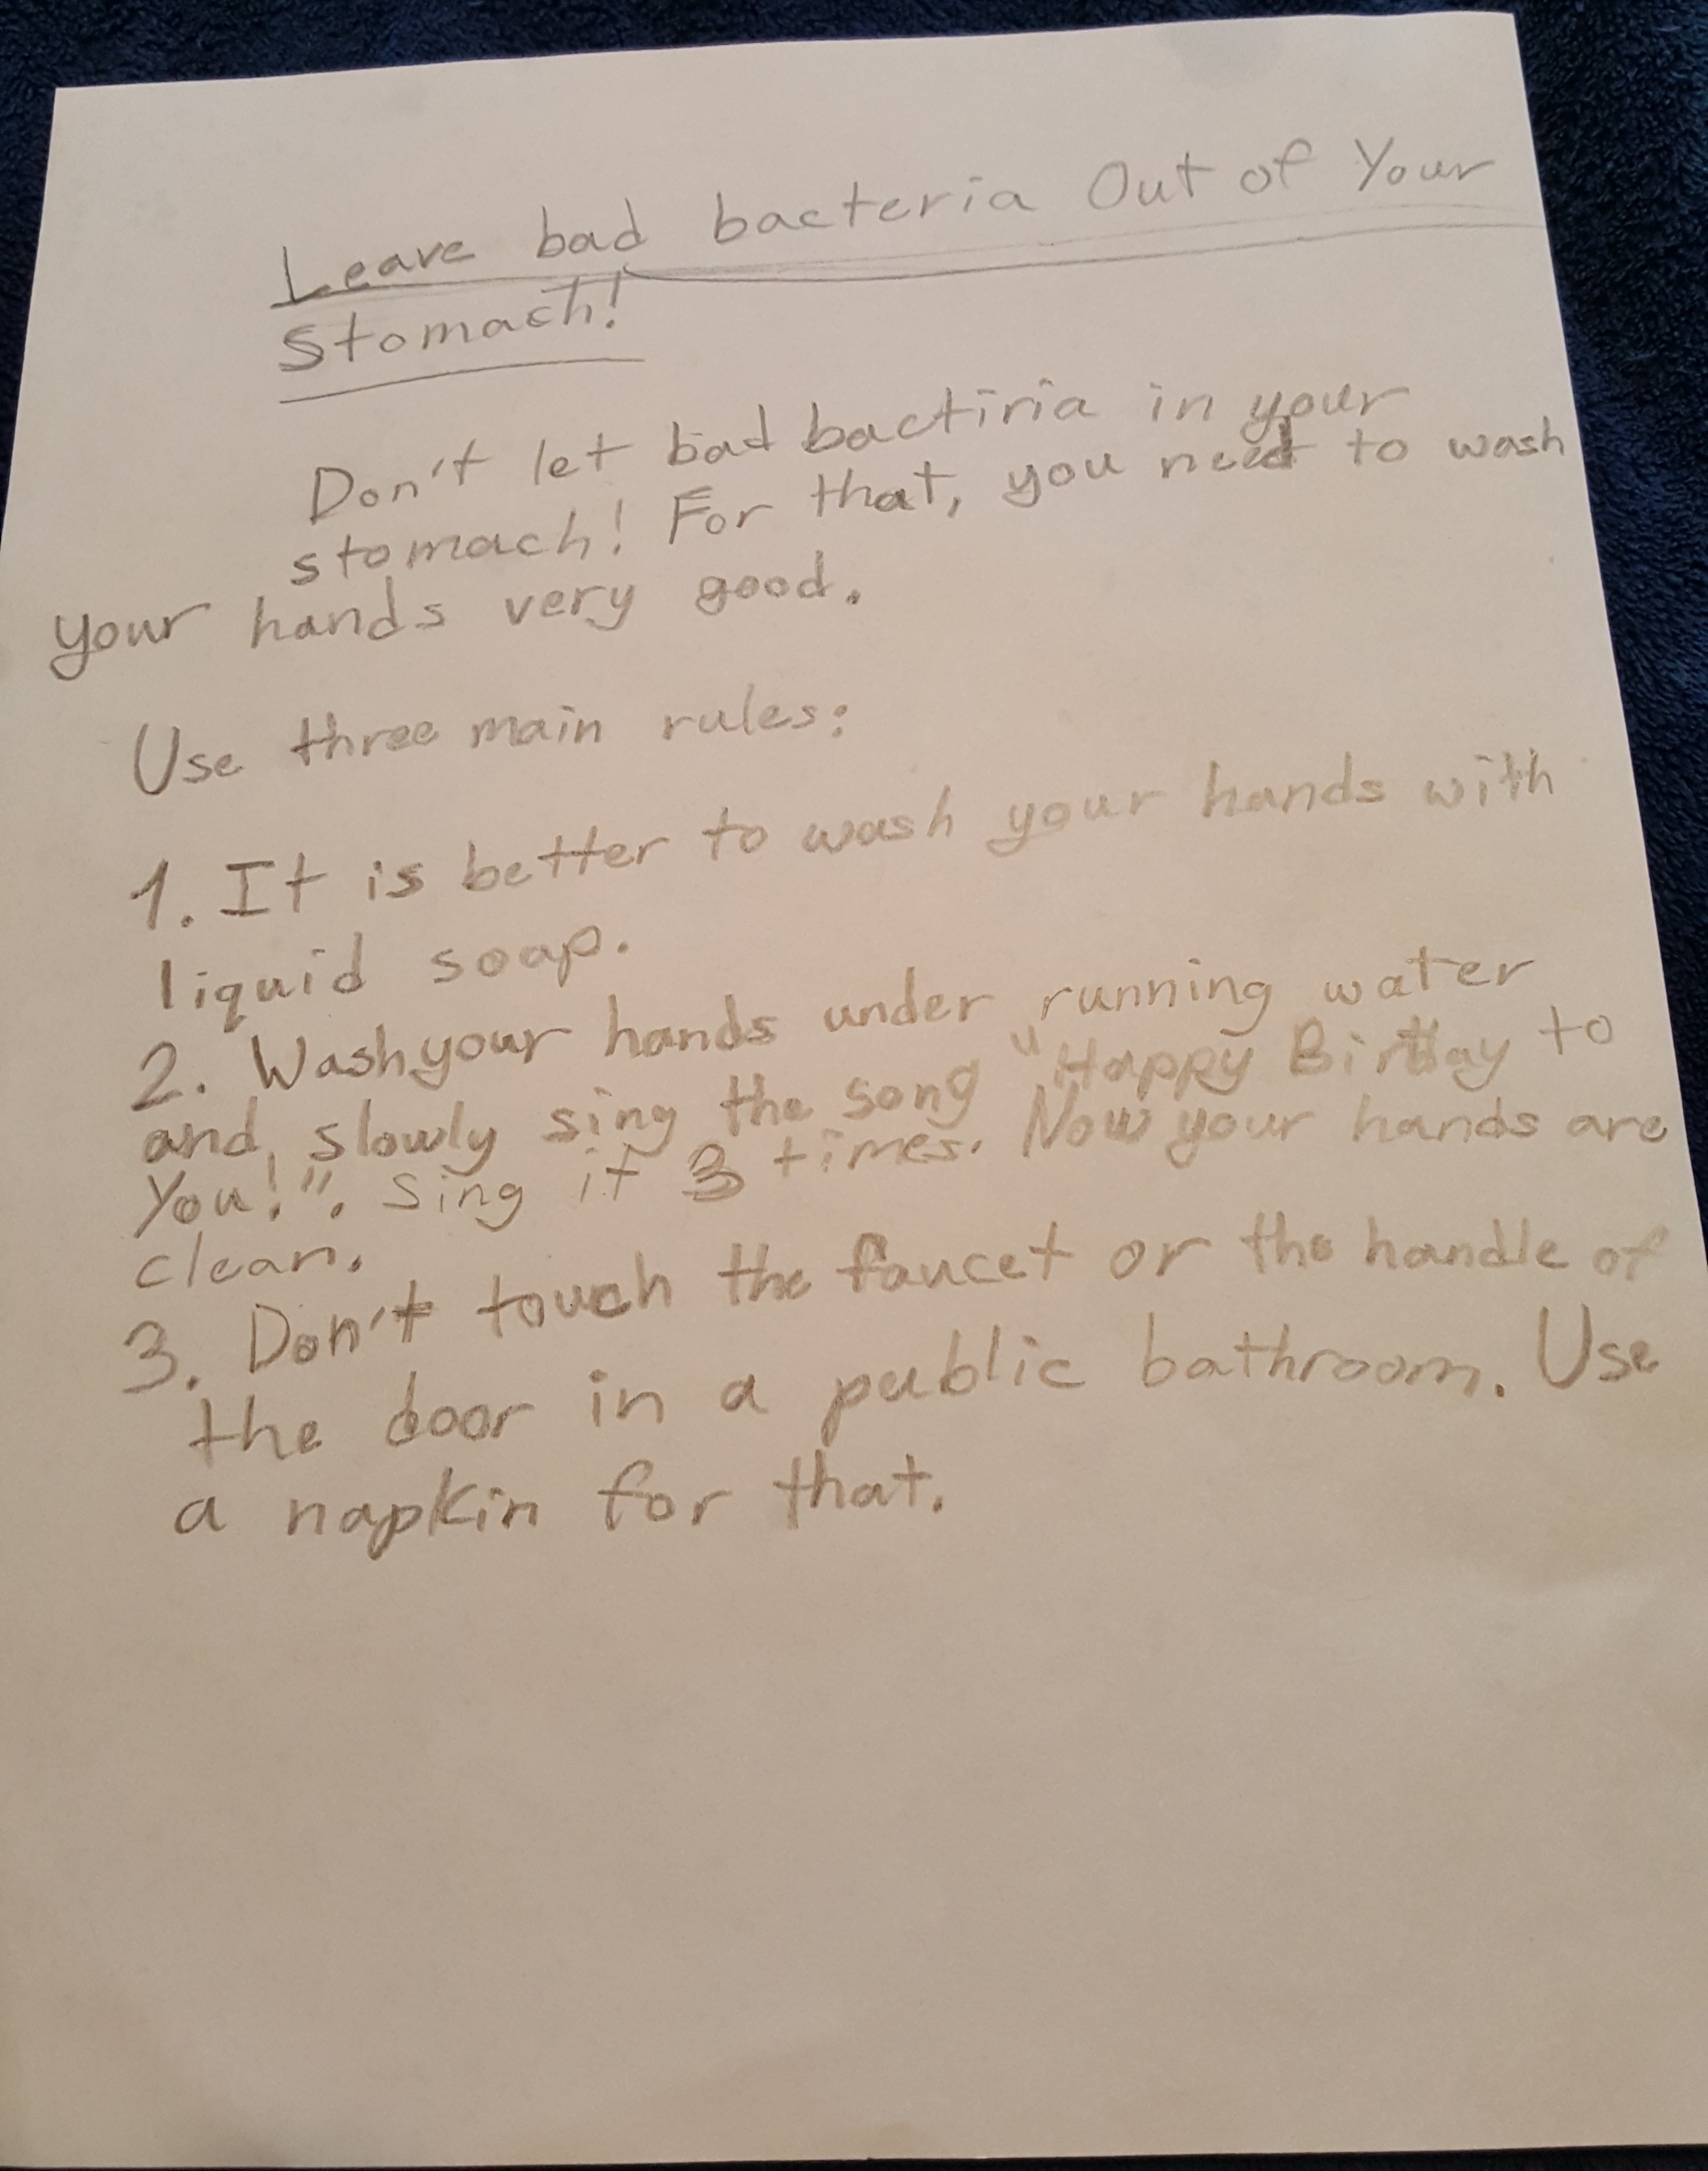 Leave bad bacteria Out of Your
Stomach!
Don't let bad bactiria in your
stomach! For that, you need to wash
your hands very good.
Use three main rules:
1. It is better to wash your hands with
liquid soap.
2. Wash your hands under running water
and, slowly sing the song "Happy Birthday to
You!". Sing it 3 times. Now your hands are
clean.
3. Don't touch the faucet or the handle of
the door in a public bathroom. Use
a napkin for that.